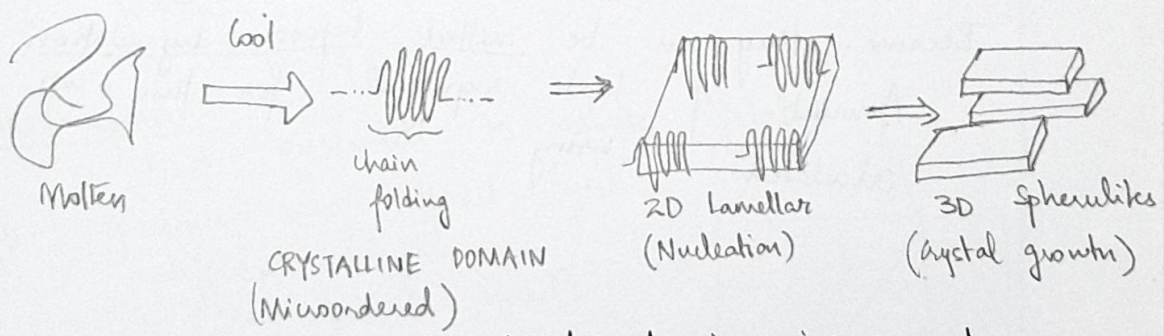 Cool
Molten
chain
folding
CRYSTALLINE DOMAIN
(Microordered)
2D Lamellar
(Nucleation)
3D Spherulites
(Crystal growth)